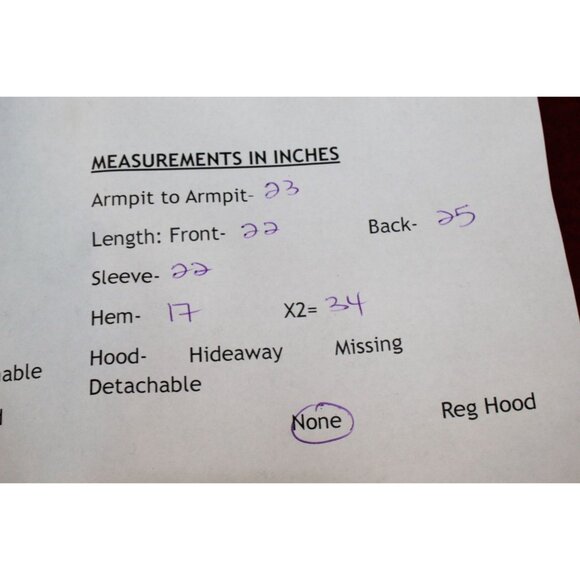 MEASUREMENTS IN INCHES
Armpit to Armpit- 23
Length: Front- 22 Back- 25
Sleeve- 22
Hem- 17 X2= 34
Hood- Hideaway Missing
able
Detachable
None Reg Hood